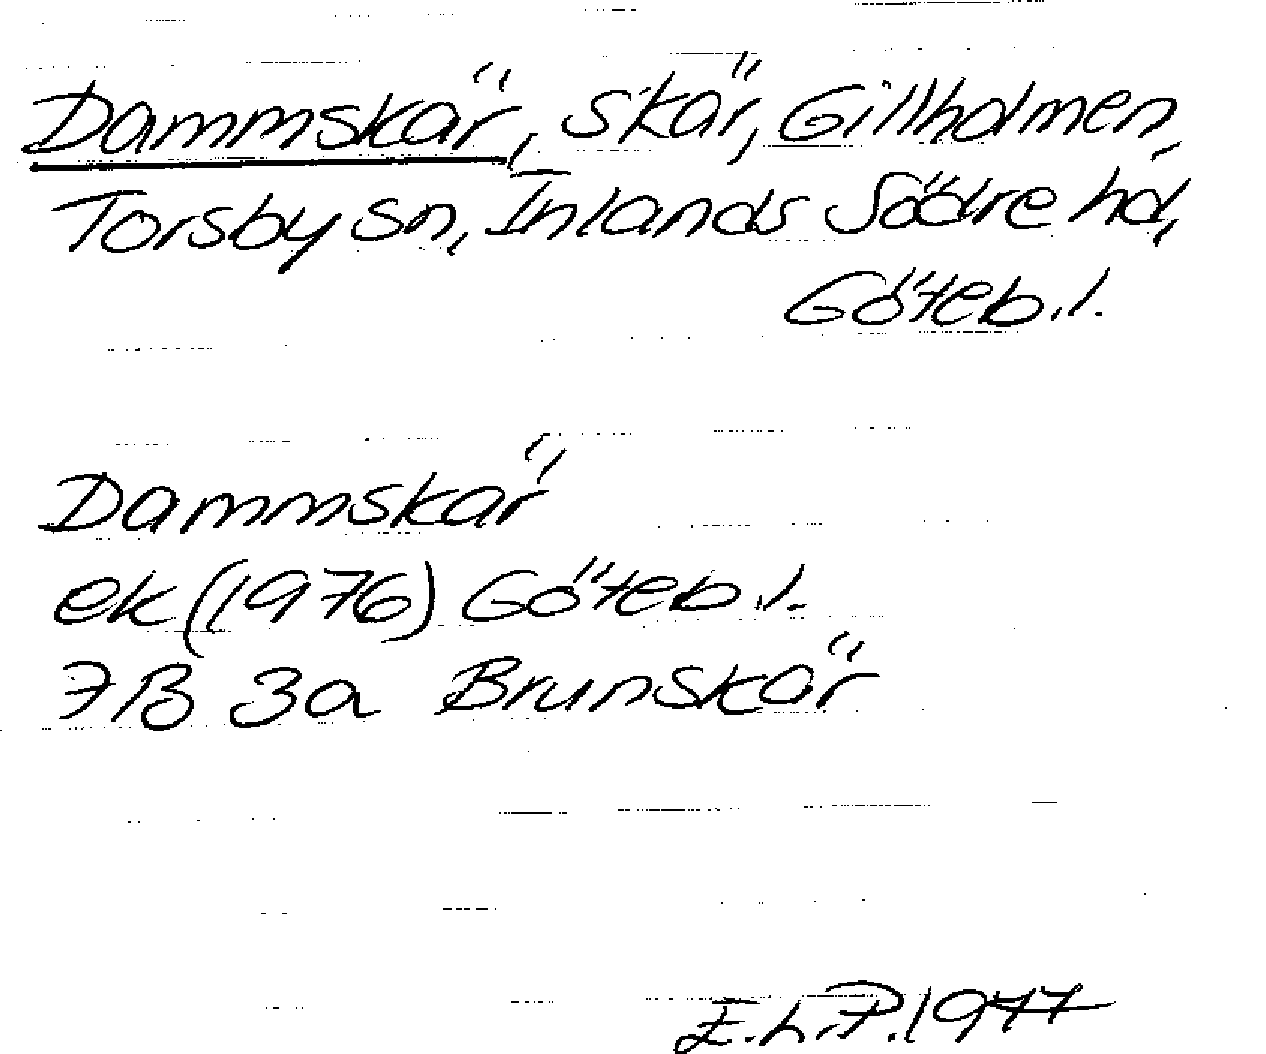 Dammskär, skär, Gillholmen,
Torsby sn, Inlands Södre hd,
Göteb.l.
Dammskär
ek (1976) Göteb.l.
7B 3a Brunskär
E.L.P. 1977